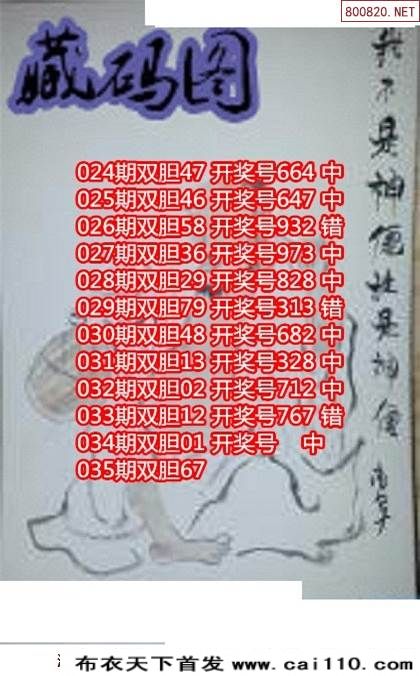 800820.NET
藏码图
我不是神仙胜是神仙
024期双胆47 开奖号664 中
025期双胆46 开奖号647 中
026期双胆58 开奖号932 错
027期双胆36 开奖号973 中
028期双胆29 开奖号828 中
029期双胆79 开奖号313 错
030期双胆48 开奖号682 中
031期双胆13 开奖号328 中
032期双胆02 开奖号712 中
033期双胆12 开奖号767 错
034期双胆01 开奖号 中
035期双胆67
布衣天下首发 www.cai110.com